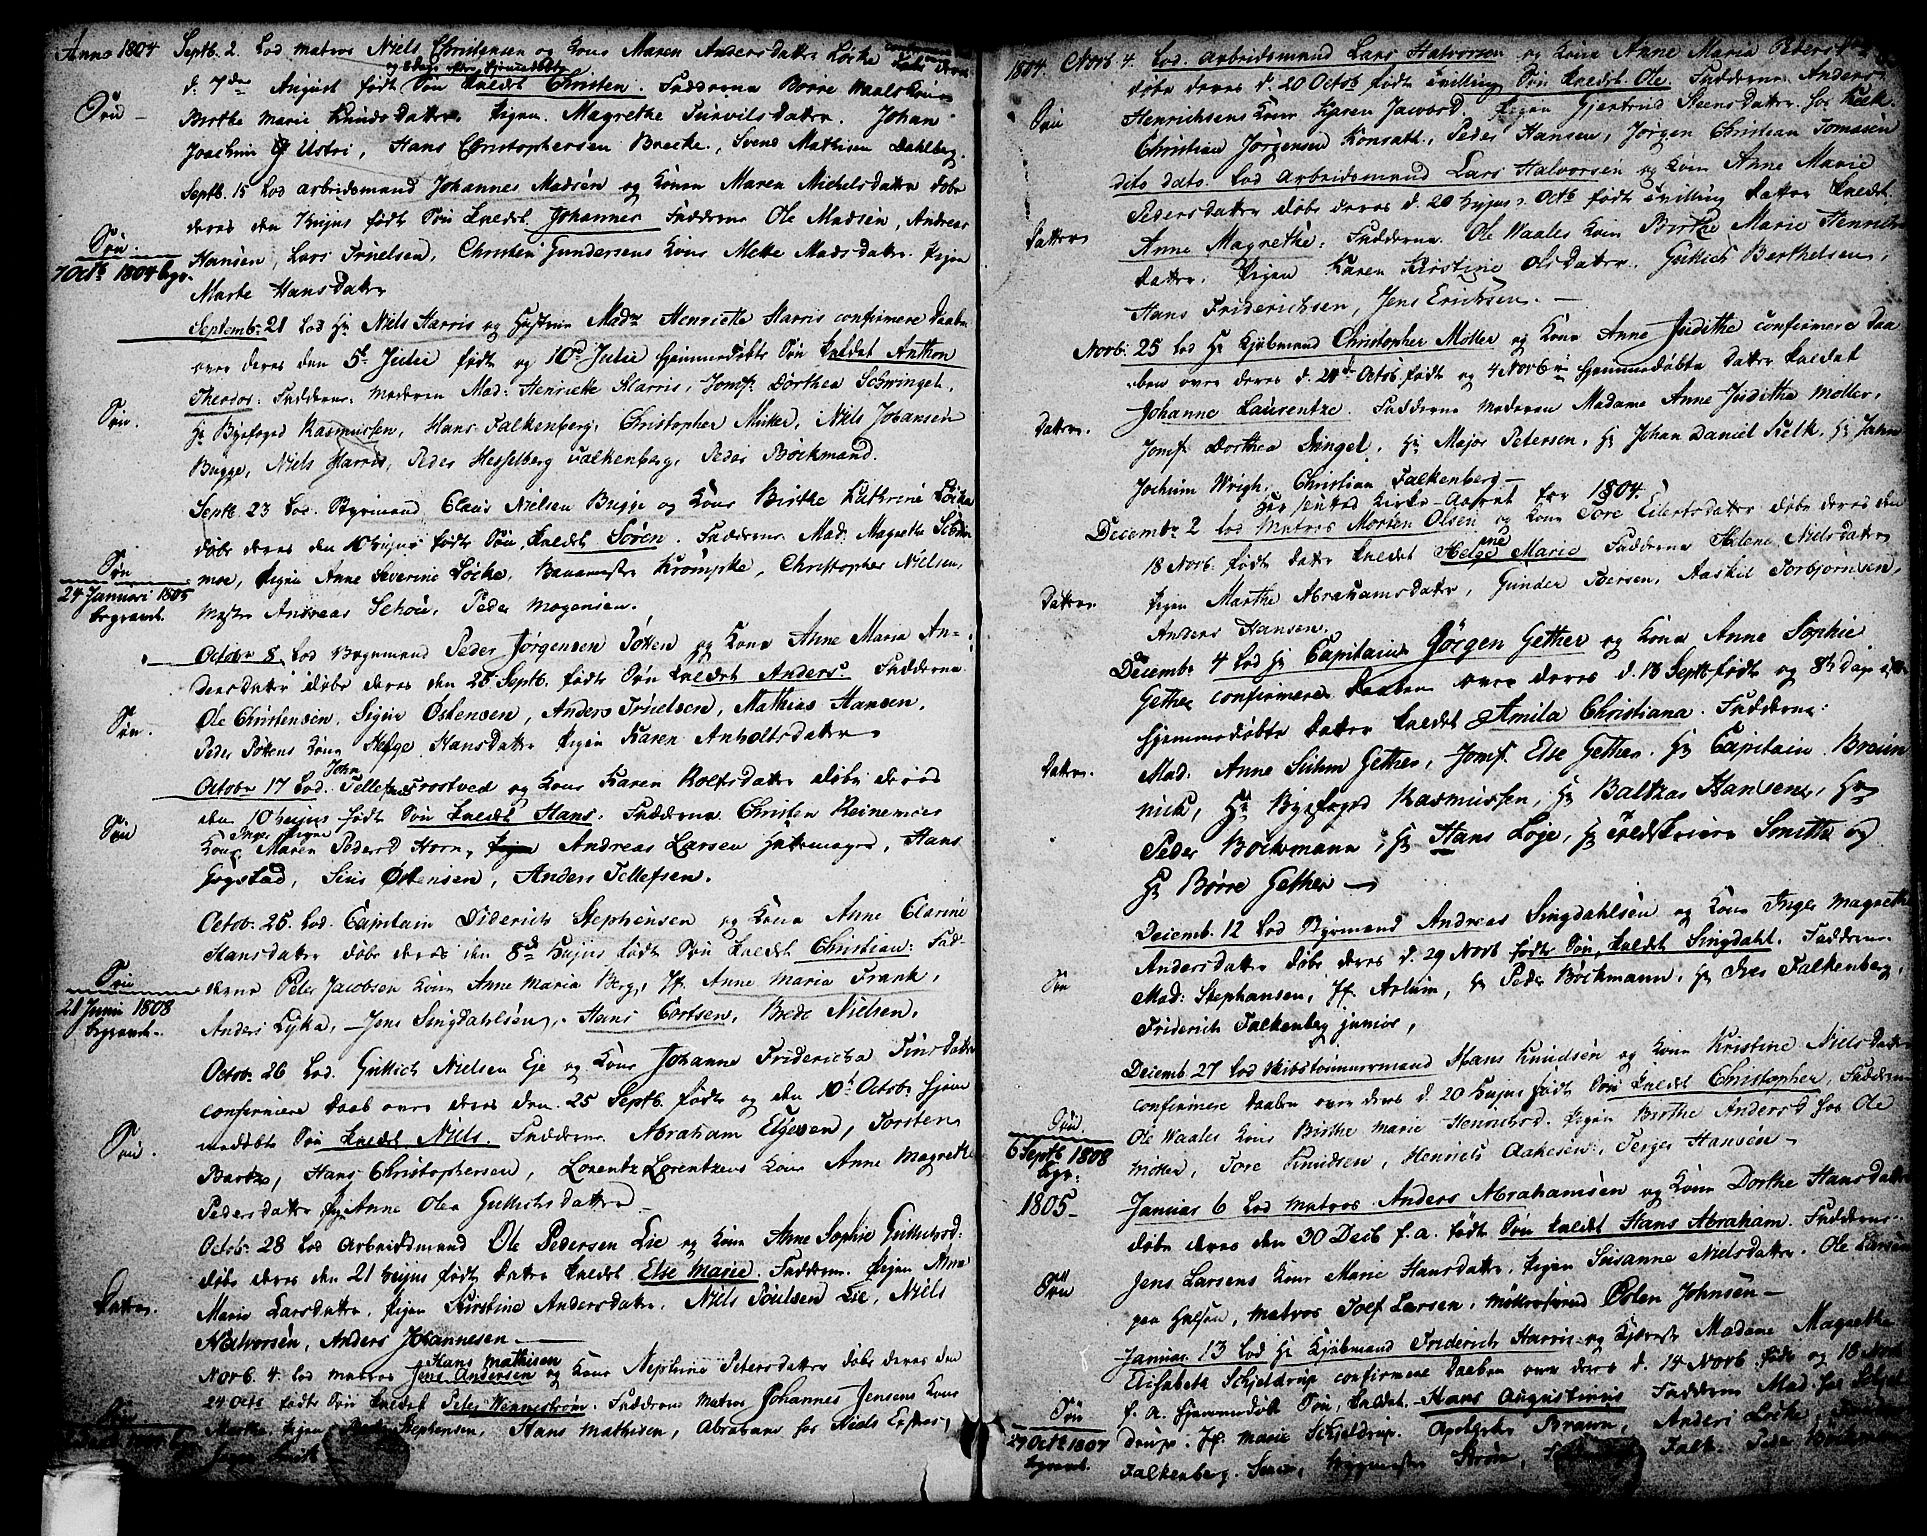 Anno 1804 Septb. 2. Lod matros Niels Christensen og Kone Maren Andersdatter Löcke confirmere Daab over deres
og 8 dage efter hjemmedöbte
d. 7de August födte Sön kaldet Christen. Fadderne Börre Waalers Kone
Sön
Birthe Marie Knudsdatter Pigen Magrethe Turvilsdatter. Johan
Joachim Ustri, Hans Christophersen Brecke, Svend Mathisen Dahlberg.
Septb. 15 Lod arbeidsmand Johannes Madsen og Konen Maren Michelsdatter döbe
deres den hujus födt Sön kaldet Johannes Fadderne Ole Madsen, Andreas
Sön.
Hansen, Lars Truelsen, Christen Gundersens Kone Mette Madsdatter. Pigen
7 Octb 1804 begr.
Marte Hansdatter
Septemb. 21 Lod Hr Niels Harris og Hustrue Madme Henriette Harris confirmere Daaben
over deres den 5t Julii födt og 10d Julii hjemmedöbte Sön kaldet Anthon
Theodor. Fadderne: moderen Mad: Henriette Harris, Jomf: Dorthea Schwingel,
Sön.
Hr Byefoged Rasmussen, Hans Falkenberg, Christopher Müller, Niels Johansen
Bugge, Niels Harris, Peder Hesselberg Falkenberg, Peder Böckmand.
Septb. 23 Lod Styrmand Claus Nielsen Bugge og Kone Birthe Kathrine Löcke
döbe deres den 10 hujus födt Sön, kaldet Sören. Fadderne Mad: Magrethe
Sön
moe, Pigen Anne Severine Löcke, Krompke, Christopher Nielsen,
24 Januari 1805
begravet.
Mester Andreas Schou, Peder Mogensen.
Octobr 8. Lod Bogmand Peder Jörgensen Töken og Kone Anne Maria An-
dersdatter döbe deres den 26 Septb. födte Sön kaldet Anders. Fadderne
Ole Christensen, Sigur Östensen, Anders Truelsen, Mathias Hansen,
Sön.
Peder Tökens Kone Helge Hansdatter Pigen Karen Anholtsdatter.
John
Octobr 17 Lod. Tellefsen Frostved og Kone Karen Rolfsdatter döbe deres
den 10 hujus födt Sön kaldet Hans. Fadderne Christen Reinemoes
Sön
Kone Maren Pedersd Horn, Andreas Larsen Hattemager, Hans
Gogstad, Sius Östensen, Anders Tellefsen.
Octob. 25. Lod. Capitain Diderich Stephensen og Kone Anne Clarine
Hansdatter döbe deres den 8d hujus födt Sön kaldet Christian: Fad-
Sön
derne Peter Jacobsen Kone Anne Maria Berg, Jf. Anne Maria Frank,
21 Junii 1808
begravet.
Anders Lyka, Jens Singdahlsen, Hans Cortsen, Brede Nielsen,
Octob. 26 Lod. Gullich Nielsen Eje og Kone Johanne Fridericha Tinsdatter
confirmere Daab over deres den 25 Septb. födt og den 10d Octob. hjem
medöbte Sön kaldet Niels. Fadderne Abraham Elgesen, Torsten
Sön.
Bartze, Hans Christophersen, Lorentz Lorentzens Kone Anne Magrethe
Pedersdatter Anne Olea Gullichsdatter
Octob. 28 Lod arbeidsmand Ole Pedersen Lie og Kone Anne Sophie Gullichsd:
döbe deres den 21 hujus födt Datter kaldet Else Marie. Fadderne Pigen Anne
Datter.
Marie Larsdatter, Pigen Kirstine Andersdatter, Niels Poulsen Lie, Niels
Halvorsen, Anders Johannesen
Hans Mathisen
Novb. 4. Lod matros Jens Andersen og Kone Nephine Petersdatter döbe deres den
24 Octb födt Sön kaldet Peter Wennerström. Fadderne matros Johannes Jensens Kone
Sön
Marthe, Pigen Stephensen, Hans Mathisen, Abraham hos Niels
1804. Novb 4. Lod. Arbeidsmand Lars Halvorsen og Kone Anne Maria Pedersdatter
döbe deres d. 20 Octob födt tvilling Sön kaldet Ole. Fadderne Anders
Sön
Henrichsens Kone Karen Jacobsd Pigen Gjertrud Steensdatter hos Kielk.
Christian Jörgensen Konrath, Peder Hansen, Jörgen Christian Tomasen
dito dato. Lod Arbeidsmand Lars Halvorsen og Kone Anne Marie
Pedersdatter döbe deres d. 20 hujus Octb födt tvilling Datter kaldet
Datter
Anne Magrethe. Fadderne. Ole Waalers Kone Birthe Marie Henrichs
datter. Pigen Karen Kirstine Olsdatter. Gullich Berthelsen,
Hans Friderichsen, Jens Erichsen.
Novb: 25 Lod Hr Kjöbmand Christopher Möller og Kone Anne Judithe confirmere Daa-
ben over deres d. Octob födt og 4 Novb hjemmedöbte Datter kaldet
Johanne Laurentze. Fadderne moderen Madame Anne Juditha Möller,
Datter.
Jomf: Dorthea Dingel, Hr Major Petersen, Hr Johan Daniel Kielk, Hr Jahn
Jochum Wrigh, Christian Falkenberg
Her Kirke-Aaret for 1804.
Decembr 2 Lod Matros Morten Olsen og Kone Tore Eilertsdatter döbe deres den
18 Novb. födt Datter kaldet Helge Marie Fadderne Helene Nielsdatter
Datter.
Pigen Marthe Abrahamsdatter, Gunder Iversen, Aaskil Torbjörnsen,
Anders Hansen.
Decembr 4 Lod Hr Capitain Jörgen Gether og Kone Anne Sophie
Gether confirmere Daaben over deres d. 18 Septb födt og 8te Dage efter
hjemmedöbte Datter kaldet Amila Christiana. Fadderne:
Datter.
Mad: Anne Suhm Gether, Jomf. Else Gether, Hr Capitain Breün
nick, Hr Byefoged Rasmussen, Hr Balthas Hansen, Hr
Peder Böckmann, Hr Hans Loje, Hr Feldskierer Smith og
Hr Börre Gether
Decemb. 12 Lod Styrmand Andreas Singdahlsen og Kone Inger Magrethe
Andersdatter döbe deres d. 29 Novb födte Sön, kaldet Singdahl. Fadderne
Sön
Mad: Stephansen, Jf. Arbum, Hr Peder Böckmann, Hr Ives Falkenberg,
Friderich Falkenberg junior,
Decemb. 27 Lod Skibstömmermand Hans Knudsen og Kone Kirstine Nielsdatter
confirmere Daaben over deres d. 20 hujus födt Sön kaldet Christopher, Fadderne
Sön.
Ole Waalers Kone Birthe Marie Henrichsd. Pigen Birthe Andersd hos Ole
6 Septb 1808
begr:
Möller, Tore Knudsen, Henrich Aakesen, Terger Hansen
1805
Januar 6 Lod matros Anders Abrahamsen og Kone Dorthe Hansdatter
döbe deres den 30 Decb f. a. födt Sön kaldet Hans Abraham. Fadderne
Sön
Jens Larsens Kone Marie Hansdatter, Pigen Susanne Nielsdatter. Ole Larsen
paa Halsen, matros Joef Larsen, Östen Johnsen
Januar. 13 Lod Hr Kjöbmand Friderich Harris og Kjæreste Madame Magrethe
Elisabeth Schjeldrup confirmere Daaben over deres d. 14 Novb födt og 18 Novb
Sön
f. a. hjemmedöbt Sön, kaldet Hans Augustinus Fadderne Mad: hos Schjel
27 Octb 1807
begravet.
drup. Jf. Marie Schjeldrup. Apotheker Brawn, Anders Löcke,
Falkenberg. Ström, Falk. Peder Böckmann